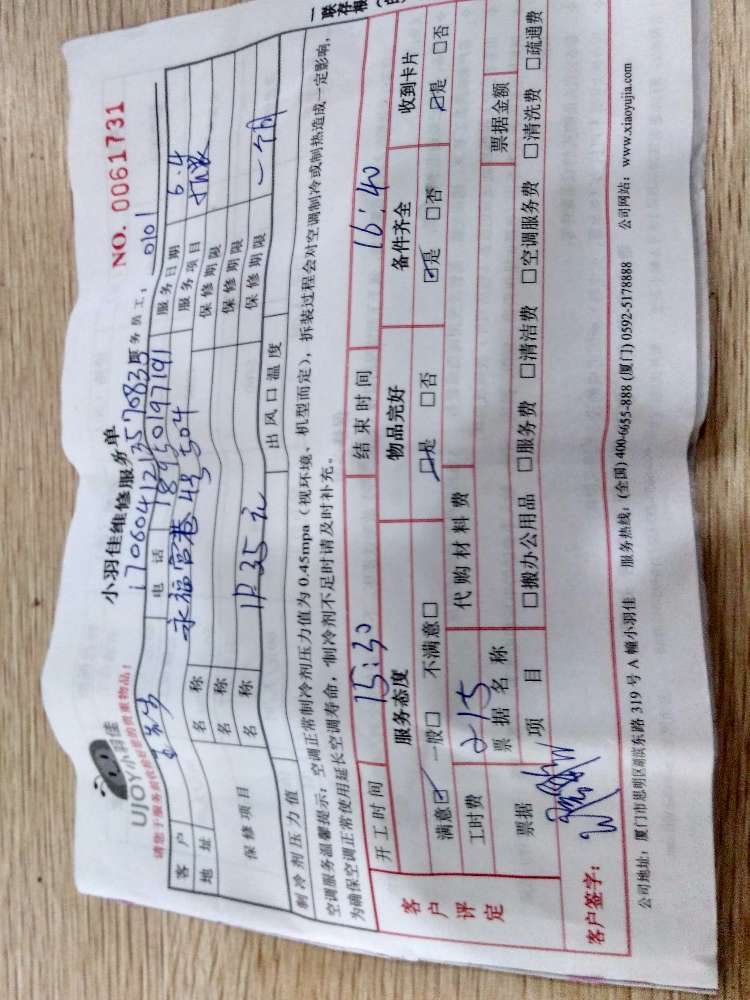 UJOY小羽佳
小羽佳维修服务单
NO. 0061731
请您于服务前收拾好您的贵重物品!
服务员工: 0101
客户 电话 18950197191 服务日期 6.4
地址 永福宫巷43 504 服务项目
保修项目 名称 保修期限
名称 保修期限
名称 1P 35元 保修期限 一个月
制冷剂压力值 出风口温度
空调服务温馨提示:空调正常制冷剂压力值为0.45mpa(视环境、机型而定),拆装过程会对空调制冷或制热造成一定影响,
为确保空调正常使用延长空调寿命,制冷剂不足时请及时补充。
客户评定
开工时间 15:30 结束时间 16:40
服务态度 物品完好 备件齐全 收到卡片
满意☑ 一般□ 不满意□ ☑是 □否 ☑是 □否 ☑是 □否
工时费 215 代购材料费
票据 票据名称 票据金额
项目 □搬办公用品 □服务费 □清洁费 □空调服务费 □清洗费 □疏通费
客户签字:
公司地址:厦门市思明区湖滨东路319号A幢小羽佳 服务热线:(全国)400-6655-888 (厦门)0592-5178888 公司网站:www.xiaoyujia.com